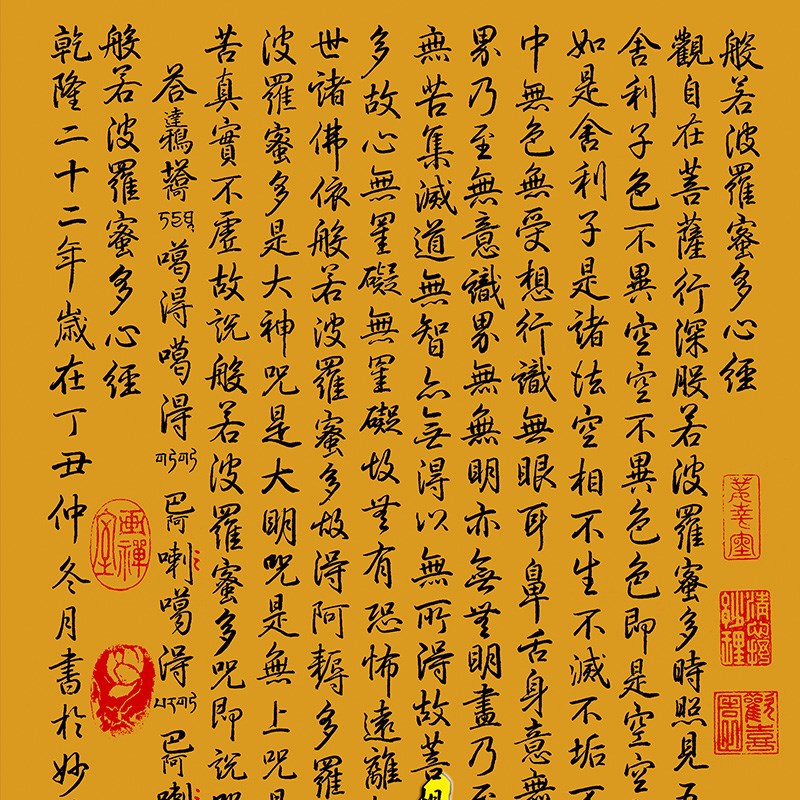 般若波羅蜜多心經
觀自在菩薩行深般若波羅蜜多時照見五
舍利子色不異空空不異色色即是空空
如是舍利子是諸法空相不生不滅不垢不
中無色無受想行識無眼耳鼻舌身意無
界乃至無意識界無無明亦無無明盡乃至
無苦集滅道無智亦無得以無所得故菩
多故心無罣礙無罣礙故無有恐怖遠離
世諸佛依般若波羅蜜多故得阿耨多羅
波羅蜜多是大神呪是大明呪是無上呪是
苦真實不虛故說般若波羅蜜多呪即說呪
荅噶得噶得巴阿喇噶得巴阿喇
般若波羅蜜多心經
乾隆二十二年歲在丁丑仲冬月書於妙
畫禪室